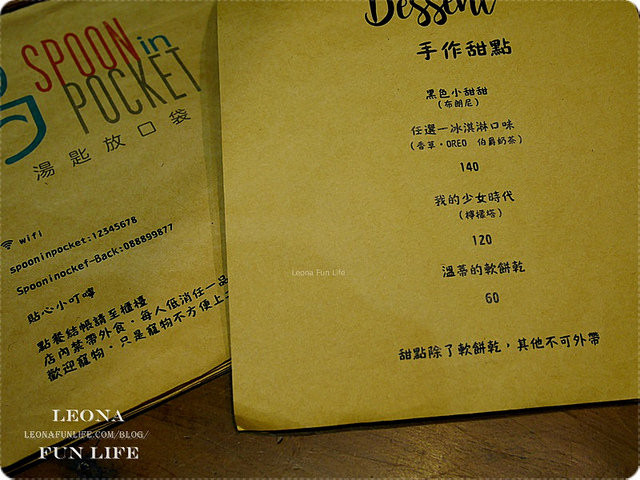 SPOON in
POCKET
湯匙放口袋
wifi
spooninpocket:12345678
Spooninockef-Back:088899877
貼心小叮嚀
點餐結帳請至櫃檯
店內禁帶外食,每人低消任一品
歡迎寵物,只是寵物不方便上
Dessert
手作甜點
黑色小甜甜
(布朗尼)
任選一冰淇淋口味
(香草。OREO 伯爵奶茶)
140
我的少女時代
(檸檬塔)
120
溫蒂的軟餅乾
60
甜點除了軟餅乾,其他不可外帶
Leona Fun Life
LEONA
LEONAFUNLIFE.COM/BLOG/
FUN LIFE